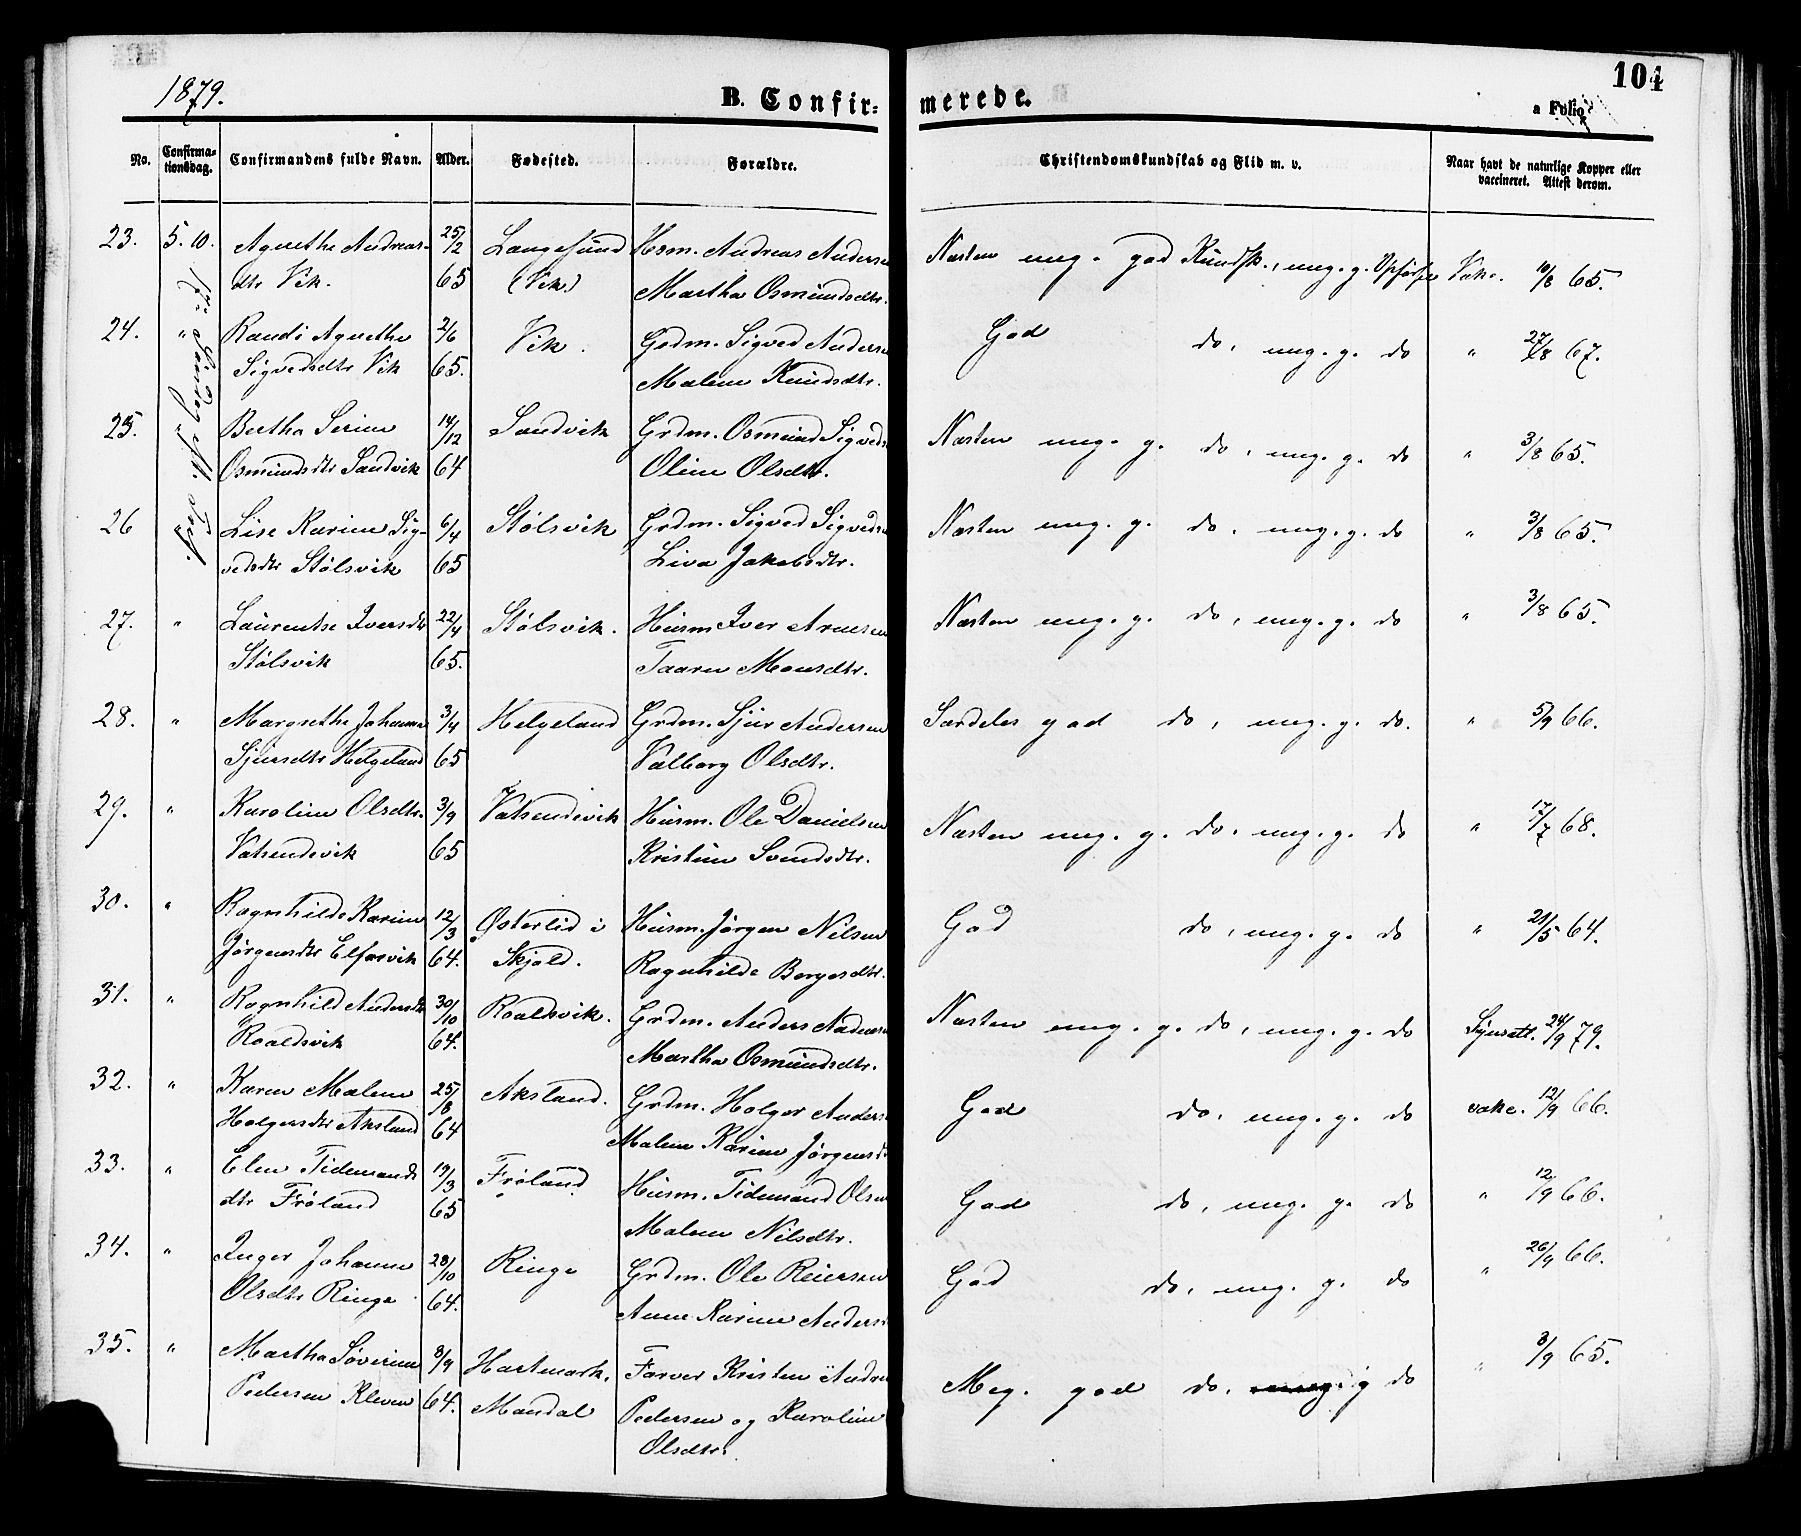 1879.
B. Confir=
merede.
104
a Folio
No.
Confirma=
tionsdag.
Confirmandens fulde Navn.
Alder.
Fødested.
Forældre.
Christendomskundskab og Flid m. v.
Naar havt de naturlige Kopper eller
vaccineret. Attest derom.
23. 5. 10. Agnethe Andreas- 25/2 Langesund Hsm. Andreas Andersen Næsten meg. god Kundsk., meg. g. Opførsel Vakc. 10/8 65.
dtr Vik. 65 (Vik) Martha Osmundsdtr.
17. Søndag
24. " Randi Agnethe 2/6 Vik. Grdm. Sigved Anders God do, meg. g. do " 27/8 67.
Sigvedsdtr Vik 65. Malene Knudsdtr.
25. " Bertha Serine 14/12 Sandvik Grdm. Osmund Sigveds Næsten meg. g. do, meg. g. do " 3/8 65.
Osmundsdtr Sandvik 64 Oline Olsdtr.
26 " Lise Karine Sig- 6/4 Stølsvik Grdm. Sigved Sigveds Næsten meg. g. do, meg. g. do " 3/8 65.
vedsdtr Stølsvik 65 Liva Jakobsdtr.
27. " Laurentse Iversdtr 22/4 Stølsvik. Husm Iver Arnesen Næsten meg. g. do, meg. g. do " 3/8 65.
Stølsvik 65. Taaren Monsdtr.
28. " Margrethe Johanne 3/4 Helgeland Grdm. Sjur Andersen Særdeles god do, meg. g. do. " 5/9 66.
Sjursdtr Helgeland 65 Valborg Olsdtr.
29. " Karoline Olsdtr. 3/9 Vatsendvik Husm. Ole Danielsen Næsten meg. g. do. meg. g. do " 17/7 68.
Vatsendvik 65 Kristine Svendsdtr.
30. " Ragnhilde Karine 12/3 Østerlid i Husm. Jørgen Nilsen God do, meg. g. do " 21/5 64.
Jørgensdtr Elfarvik 64. Skjold. Ragnhilde Borgesdtr.
31. " Ragnhild Andersdtr 30/10 Roaldsvik. Grdm. Anders Næsten meg. g. do, meg. g. do Synsatt. 24/9 79.
Roaldsvik 64. Martha Osmundsdtr.
32. " Karen Malene 25/8 Aksland. Grdm. Holger Anders God do, meg. g. do vakc. 12/9 66.
Holgersdtr Aksland 64 Malene Karine Jørgensd
33. " Elen Tidemands 19/3 Frøland Husm. Tidemand Olsen God do, meg. g. do " 12/9 66.
dtr Frøland 65 Malene Nilsdtr.
34. " Inger Johanne 28/10 Ringe Grdm. Ole Reiersen God do, meg. g. do " 26/9 66.
Olsdtr Ringe 64. Anne Karine Anders
35. " Martha Søverine 8/9 Hartmark. Farver Kristen Meg. god do. g do " 8/9 65.
Pedersen Kleven 64. Mandal Pedersen og Karoline
Olsdtr.